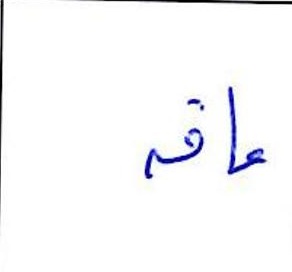 عاقه